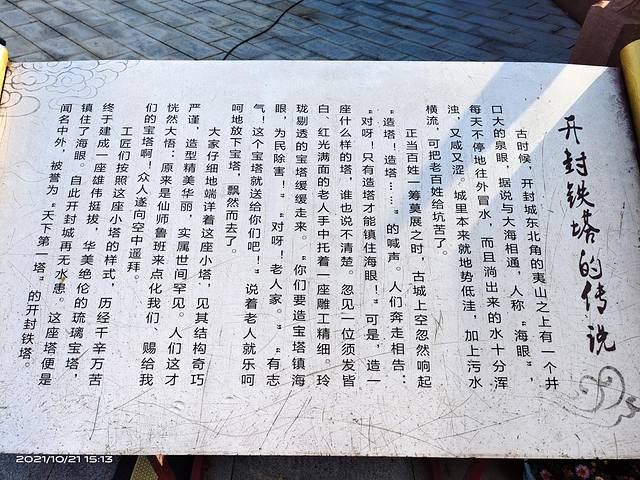 开封铁塔的传说
古时候，开封城东北角的夷山之上有一个井
口大的泉眼，据说与大海相通，人称“海眼”，
每天不停地往外冒水，而且淌出来的水十分浑
浊，又咸又涩。城里本来就地势低洼，加上污水
横流，可把老百姓给坑苦了。
正当百姓一筹莫展之时，古城上空忽然响起
“造塔！造塔……”的喊声。人们奔走相告：
“对呀！只有造塔才能镇住海眼！”可是，造一
座什么样的塔，谁也说不清楚。忽见一位须发皆
白、红光满面的老人手中托着一座雕工精细。玲
珑剔透的宝塔缓缓走来。“你们要造宝塔镇海
眼，为民除害！”“对呀！老人家。”“有志
气！这个宝塔就送给你们吧！”说着老人就乐呵
呵地放下宝塔，飘然而去了。
大家仔细地端详着这座小塔，见其结构奇巧
严谨，造型精美华丽，实属世间罕见。人们这才
恍然大悟：原来是仙师鲁班来点化我们、赐给我
们的宝塔啊！众人遂向空中遥拜。
工匠们按照这座小塔的样式，历经千辛万苦
终于建成一座雄伟挺拔，华美绝伦的琉璃宝塔，
镇住了海眼。自此开封城再无水患。这座塔便是
闻名中外，被誉为“天下第一塔”的开封铁塔。
2021/10/21 15:13